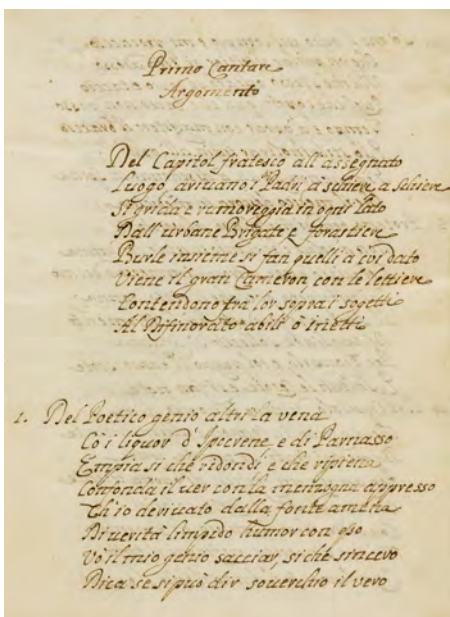 Primo Cantare
Argomento
Del Capitol fratesco all'assegnato
Luogo, arivano i Padri à schiere a schiere
Si grida e rumoreggia in ogni lato
Dall'urbane Brigate e forastiere
Burle insieme si fan quelli à cui dato
Viene il gran Cameron, con le lettiere
Contendono frà lor sopra i sogetti
Al abili ò inetti
1. Del Poetico genio altri la vena
Co i liquor d'Ipocrene e di Parnasso
Empia si che ridondi e che ripiena
Confonda il ver con la menzogna appresso
Ch'io derivato dalla fonte amena
Di verità limpido humor con
Vò il mio genio sacciar, si che sincero
Dica se si può dir soverchio il vero